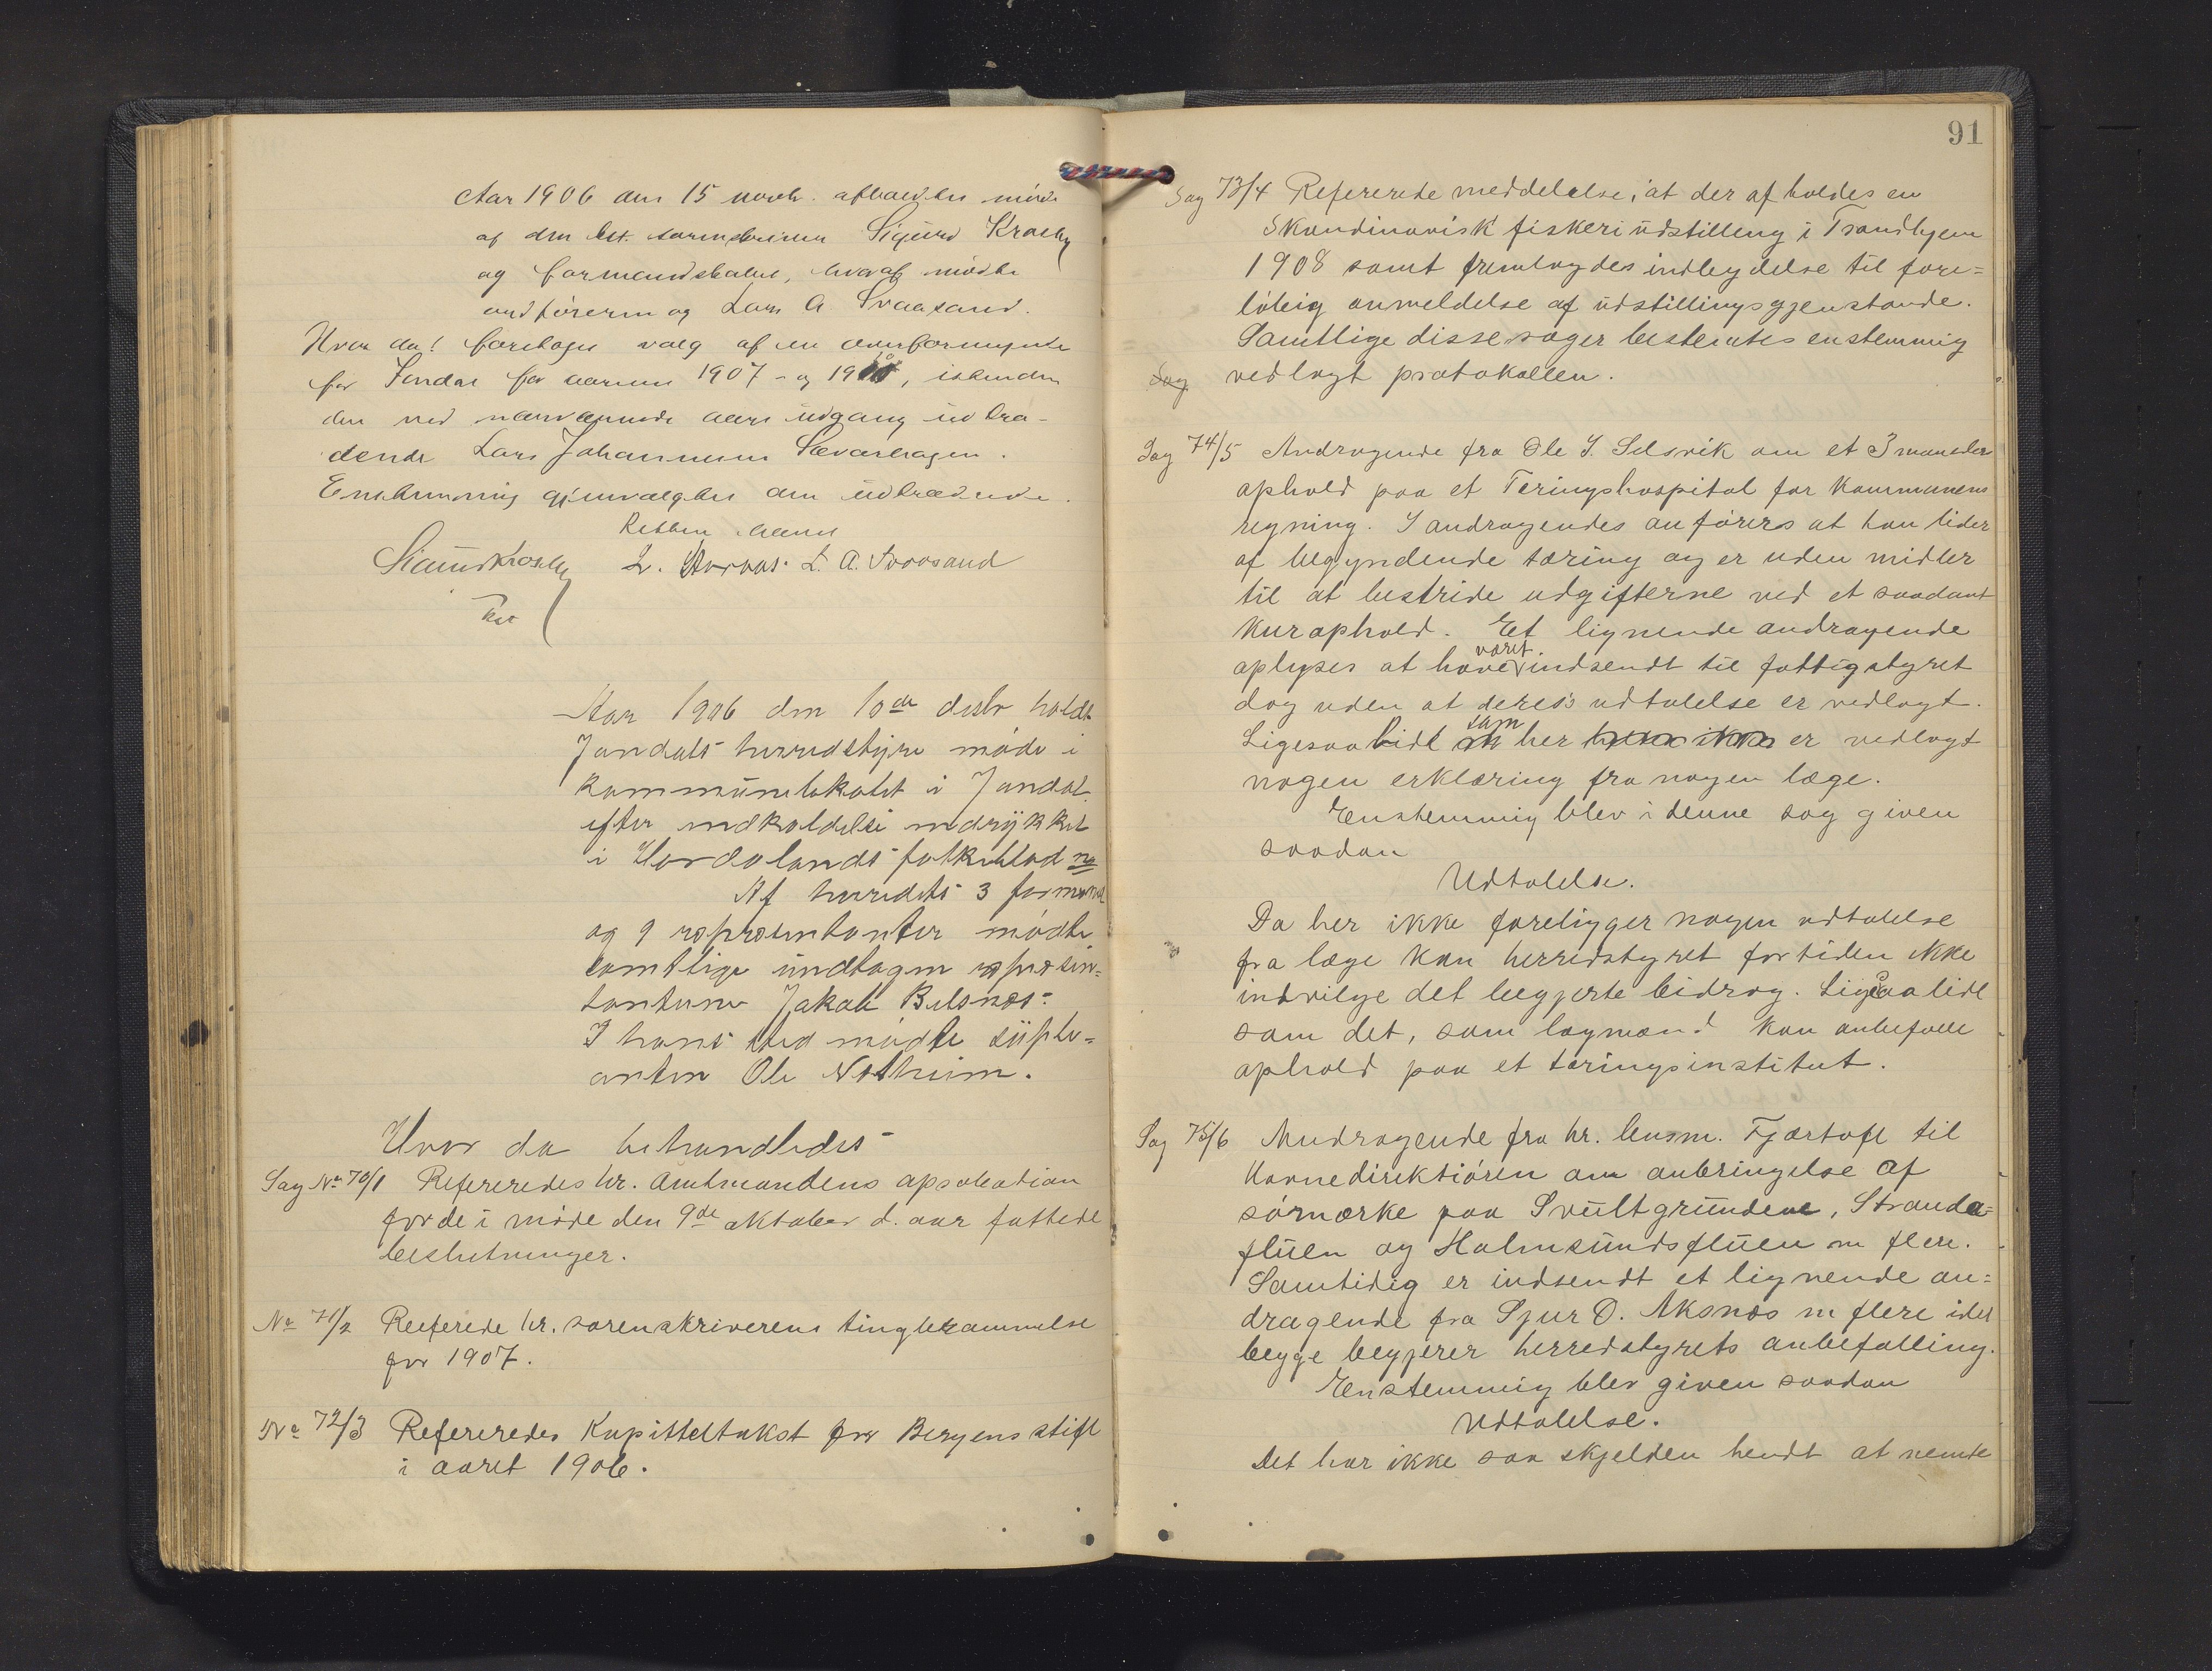 Aar 1906 den 15 novbr. afholdtes møde
af den bst. sorenskriver Sigurd Krosby
og formandskabet, hvoraf mødte
ordføreren og Lars A. Svaasand.
Hvor da! foretoges valg af en overformynder
for Jondal for aarene 1907 - og 1910, istedenfor
den ved nærværende aars udgang udtræ-
dende Lars Johannesen Sævarhagen.
Enstemmig gjenvalgtes den udtrædende.
Retten hævet
Sigurd Krosby L. Aarvas. L. A. Svaasand
bst
Aar 1906 den 10de desbr holdt
Jondals herredstyre møde i
kommunelokalet i Jondal
efter indkaldelse indrykket
i Hordalands folkeblad no
Af herredets 3 formænd
og 9 repræsentanter mødte
samtlige undtagen repræsen=
tanterne Jakob Belsnæs.
I hans sted mødte suple=
anten Ole Netheim.
Hvor da behandledes
Sag No 70/1 Refereredes hr. Amtmandens aprobation
for de i møde den 9de oktober d. aar fattede
beslutninger.
No 71/2 Referede hr. sorenskriverens tingberammelse
for 1907.
No 72/3 Refereredes Kapitteltakst for Bergens stift
i aaret 1906.
91
Sag 73/4 Refererede meddelelse, at der afholdes en
Skandinavisk fiskeriudstilling i Trondhjem
1908 samt fremlagdes indbydelse til fore=
løbig anmeldelse af udstillingsgjenstande.
Samtlige disse sager besluttes enstemmig
Sag vedlagt protokollen.
Sag 74/5 Andragende fra Ole J. Selsvik om et 3 maaneders
ophold paa et Teringshospital for Kommunens
regning. I andragendes anføres at han lider
af begyndende tæring og er uden midler
til at bestride udgifterne ved et saadant
Kurophold. Et lignende andragende
været
oplyses at have indsendt til fattigstyret
dog uden at deres's udtalelse er vedlagt.
som
Ligesaa lidt her er vedlagt
nogen erklæring fra nogen læge.
Enstemmig blev i denne sag given
saadan
Udtalelse.
Da her ikke foreligger nogen udtalelse
fra læge kan herredstyret for tiden ikke
indvilge det begjerte bidrag. Ligesaa lidt
som det, som lægmænd kan anbefale
ophold paa et tæringsinstitut.
Sag 75/6 Andragende fra hr. lensm. Fjærtoft til
Havnedirektiøren om anbringelse af
sømærke paa Svultgrundene, Stranda=
fluen og Holmsundsfluen m flere.
Samtidig er indsendt et lignende an=
dragende fra Sjur O. Aksnæs m flere idet
begge begjerer herredstyrets anbefalling.
Enstemmig blev given saadan
Udtalelse.
Det har ikke saa skjelden hendt at nemte